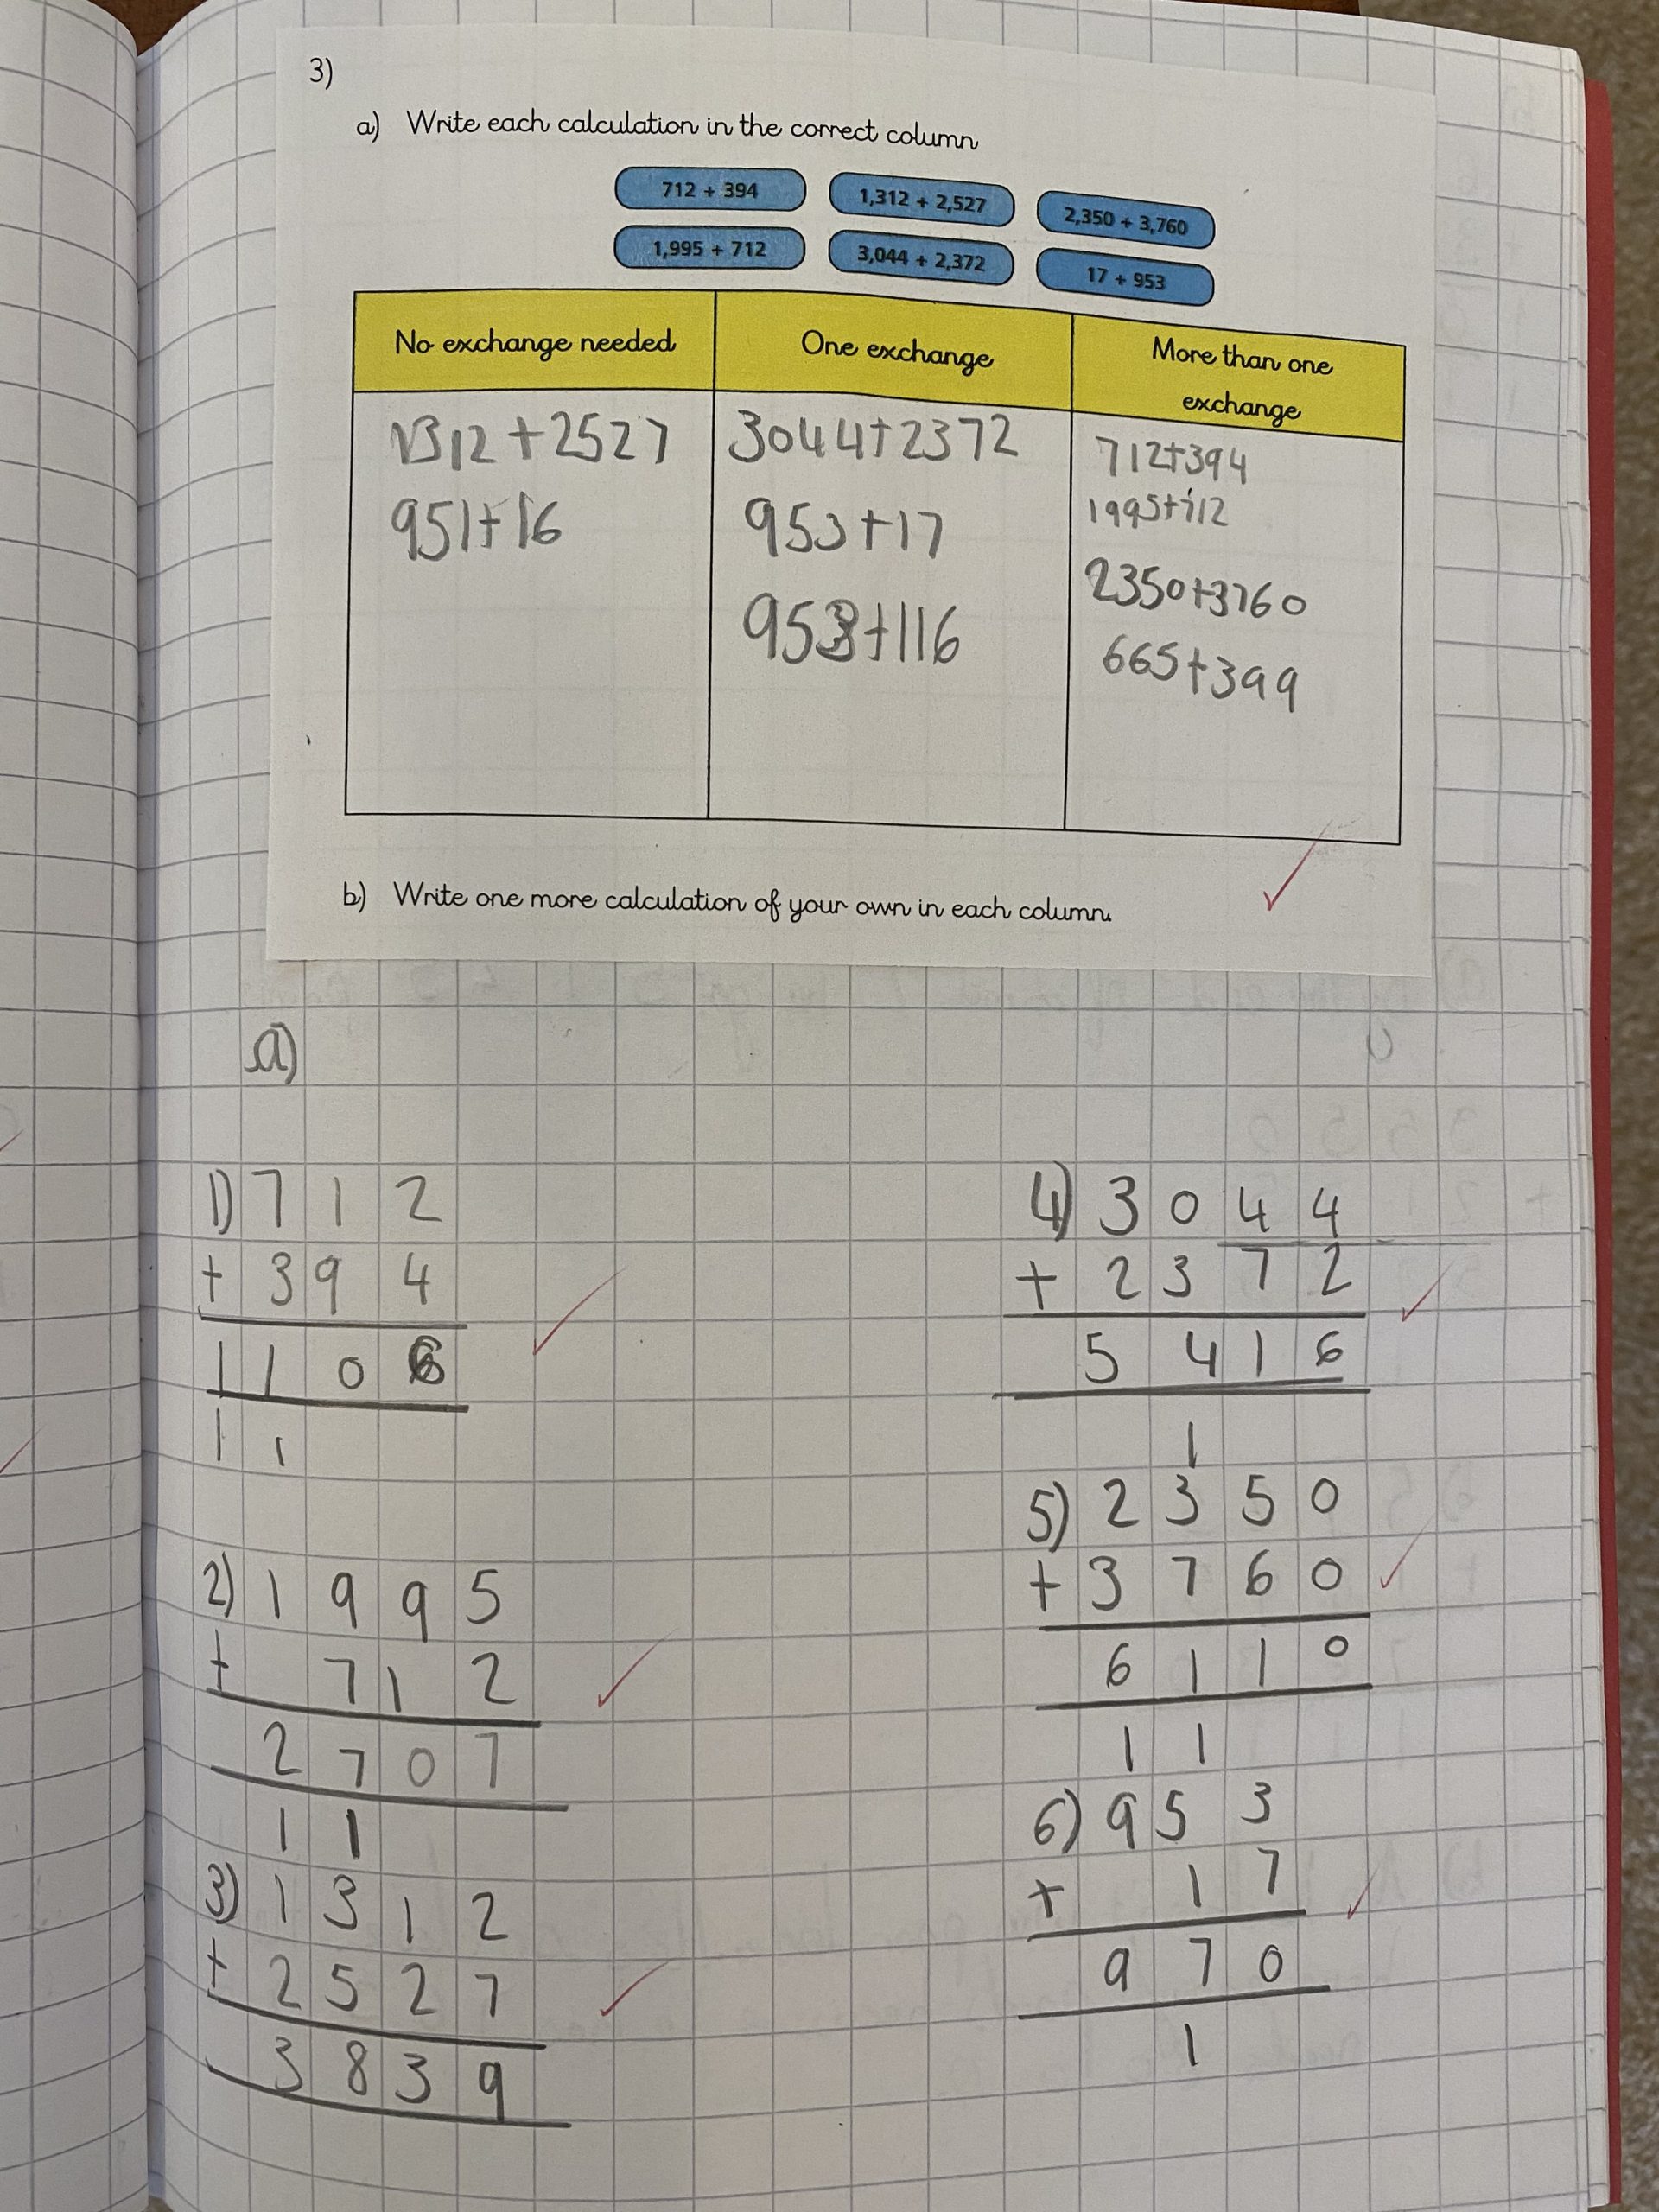 3)
a) Write each calculation in the correct column
712 + 394 1,312 + 2,527 2,350 + 3,760
1,995 + 712 3,044 + 2,372 17 + 953
No exchange needed One exchange More than one exchange
1312+2527 3044+2372 712+394
951+16 953+17 1995+712
953+116 2350+3760
665+399
b) Write one more calculation of your own in each column.
a)
1) 7 1 2
+ 3 9 4
1 1 0 6
1 1
2) 1 9 9 5
+ 7 1 2
2 7 0 7
1 1
3) 1 3 1 2
+ 2 5 2 7
3 8 3 9
4) 3 0 4 4
+ 2 3 7 2
5 4 1 6
1
5) 2 3 5 0
+ 3 7 6 0
6 1 1 0
1 1
6) 9 5 3
+ 1 7
9 7 0
1